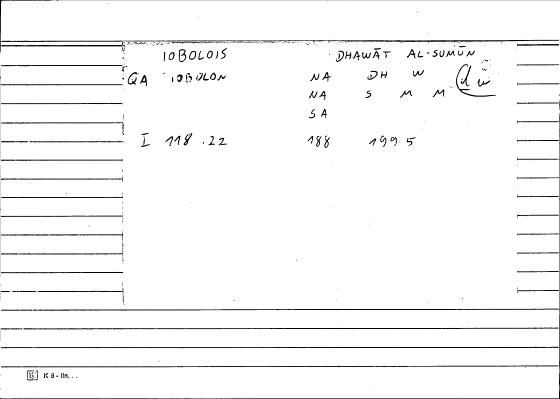 IOBOLOIS DHAWĀT AL-SUMŪN
QA IOBOLON NA DH W
NA S M M
SA
I 118.22 188 199.5
K 6 - lin...